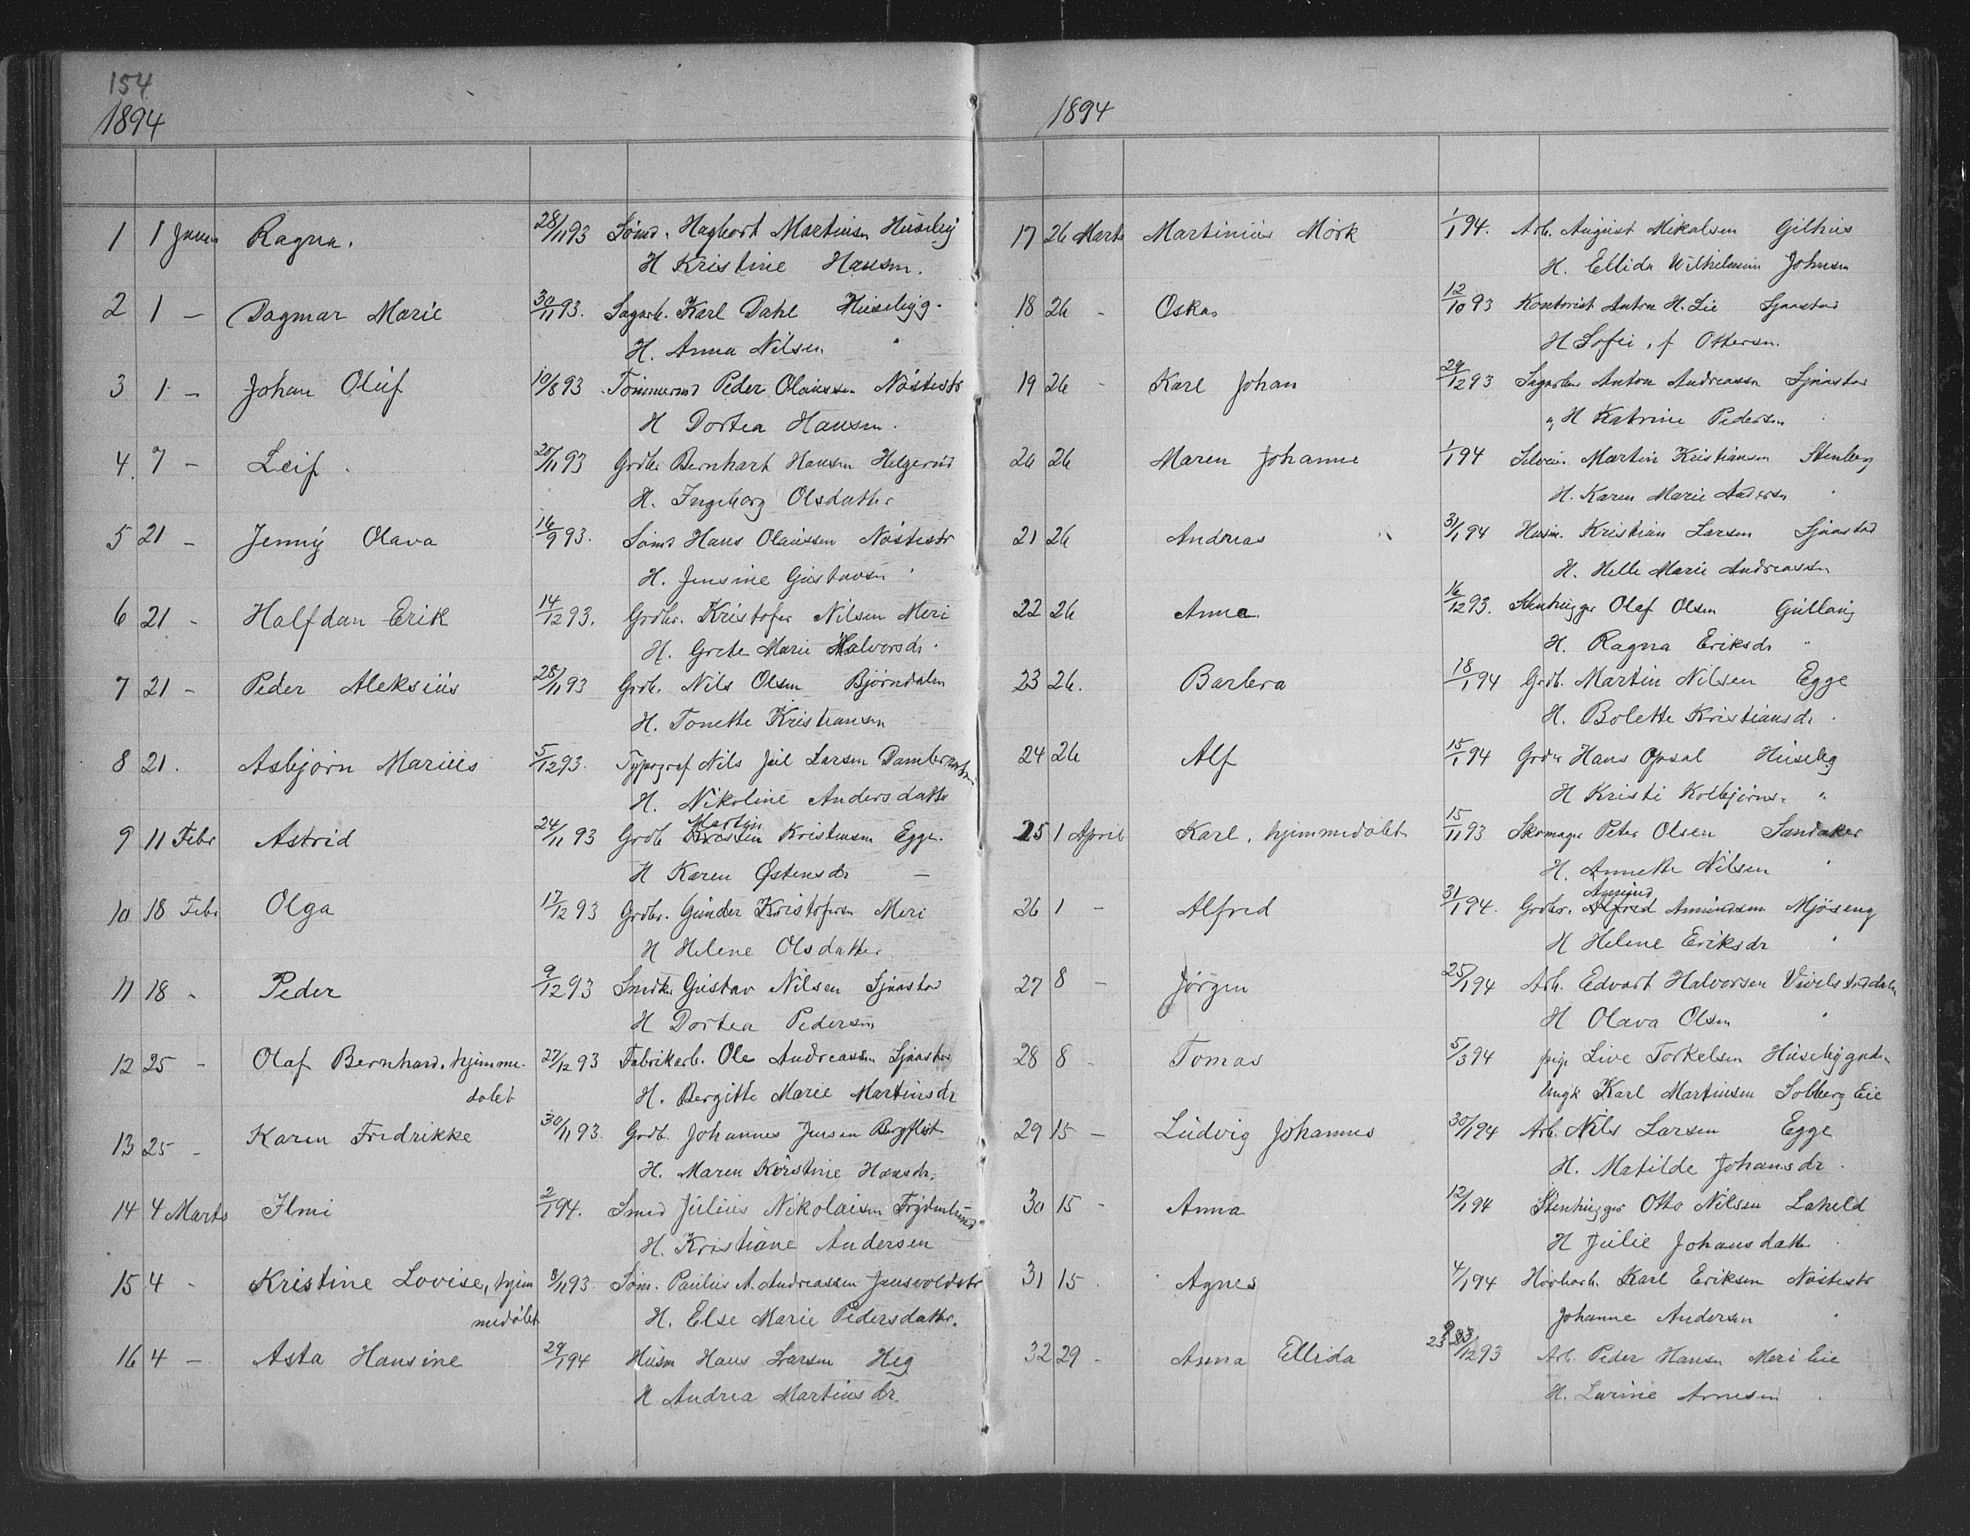 154
1894
1 1 Ragna. 28/11 93 Sømd. Hagbart Martinsen Huseby
H Kristine Hansen.
2 1 — Dagmar Marie 30/11 93. Sagarb. Karl Dahl Huseby
H. Anna Nilsen
3 1 — Johan Oluf 10/8 93 Tømmermd Peder Olaussen Nøstestr
H Dortea Hansen.
4 7 — Leif. 20/11 93 Grdbr Bernhart Hansen Helgerud
H. Ingeborg Olsdatter
5 21 — Jenny Olava 16/9 93. Sømd Hans Olaussen Nøstestr
H. Jensine Gustavsen
6 21 - Halfdan Erik 14/12 93. Grdbr. Kristofer Nilsen Meri
H. Grete Marie Halvorsdr.
7 21 — Peder Aleksius 28/11 93 Grdb. Nils Olsen Bjørndalen
H. Tonette Kristiansen
8 21. Asbjørn Marius 5/12 93. Typograf Nils Juel Larsen
H. Nikoline Andersdatter
9 11 Febr Astrid 24/11 93 Grdb Martin Kristensen Egge.
H Karen Østensdr —
10 18 Febr Olga 17/12 93 Grdbr. Gunder Kristofersen Meri
H Helene Olsdatter
11 18 - Peder 9/12 93 Gustav Nilsen Sjaastad
H Dortea Pedersen
12 25 - Olaf Bernhard, hjemme- 27/12 93 Fabrikarb. Ole Andreassen Sjaastad
døbt H. Bergitte Marie Martinsdr
13 25 - Karen Fredrikke 30/11 93. Grdb. Johannes Jensen Bergfløt
H. Maren Kristine Hansdr.
14 4 Marts Ilmi 2/1 94. Smed Julius Nikolaisen
H. Kristiane Andersen
15 4 - Kristine Lovise, hjem 8/11 93. Søm. Paulus A. Andreassen Jensvoldstr
medøbt H. Else Marie Pedersdatter.
16 4 — Asta Hansine 29/1 94 Husm Hans Larsen Heg
H Andrea Martinsdr.
1894
17 26 Marts Martinius Mørk 1/1 94. Arb. August Mikalsen Gilhus
H. Ellida Wilhelmine Johnsen
18 26 - Oskar 12/10 93 Kontorist Anton H. Lie Sjaastad
H Sofie, f Ottersen.
19 26 - Karl Johan 29/12 93 Sagarber Anton Andreassen Sjaastad
" H Katrine Pedersen
20 26 Maren Johanne 1/1 94 Martin Kristiansen Stenberg
H. Karen Marie Andersen
21 26 Andreas 31/1 94 Husm. Kristian Larsen Sjaastad
H. Helle Marie Andreassen
22 26 Anna 16/12 93. Stenhugger Olaf Olsen Gullaug
H. Ragna Eriksdr "
23 26. Barbra 18/1 94 Grdb. Martin Nilsen Egge
H. Bolette Kristiansdr.
24 26 Alf 15/1 94 Grdbr Hans Opsal Huseby
H Kristi Kolbjørns. "
25 1 April Karl, hjemmedøbt 15/11 93 Skomager Peter Olsen Sandaker
H. Annette Nilsen
26 1 — Alfred 31/1 94. Grdbr. Amund Amundsen Mjøseng
H Helene Eriksdr
27 8 — Jørgen 25/1 94 Arb. Edvart Halvorsen
H Olava Olsen
28 8 - Tomas 5/3 94 pige Live Torkelsen
Ungk Karl Martinsen Solberg Eie
29 15 — Ludvig Johannes 30/1 94 Arb. Nils Larsen Egge
H. Matilde Johansdr.
30 15 - Anna 12/1 94 Stenhugger Otto Nilsen Laheld
H Julie Johansdatter
31 15 Agnes 4/1 94 Karl Eriksen Nøstestr
Johanne Andersen
32 29 - Anna Ellida 23/12 93 Arb. Peder Hansen Meri Eie
H. Lurine Arnesen